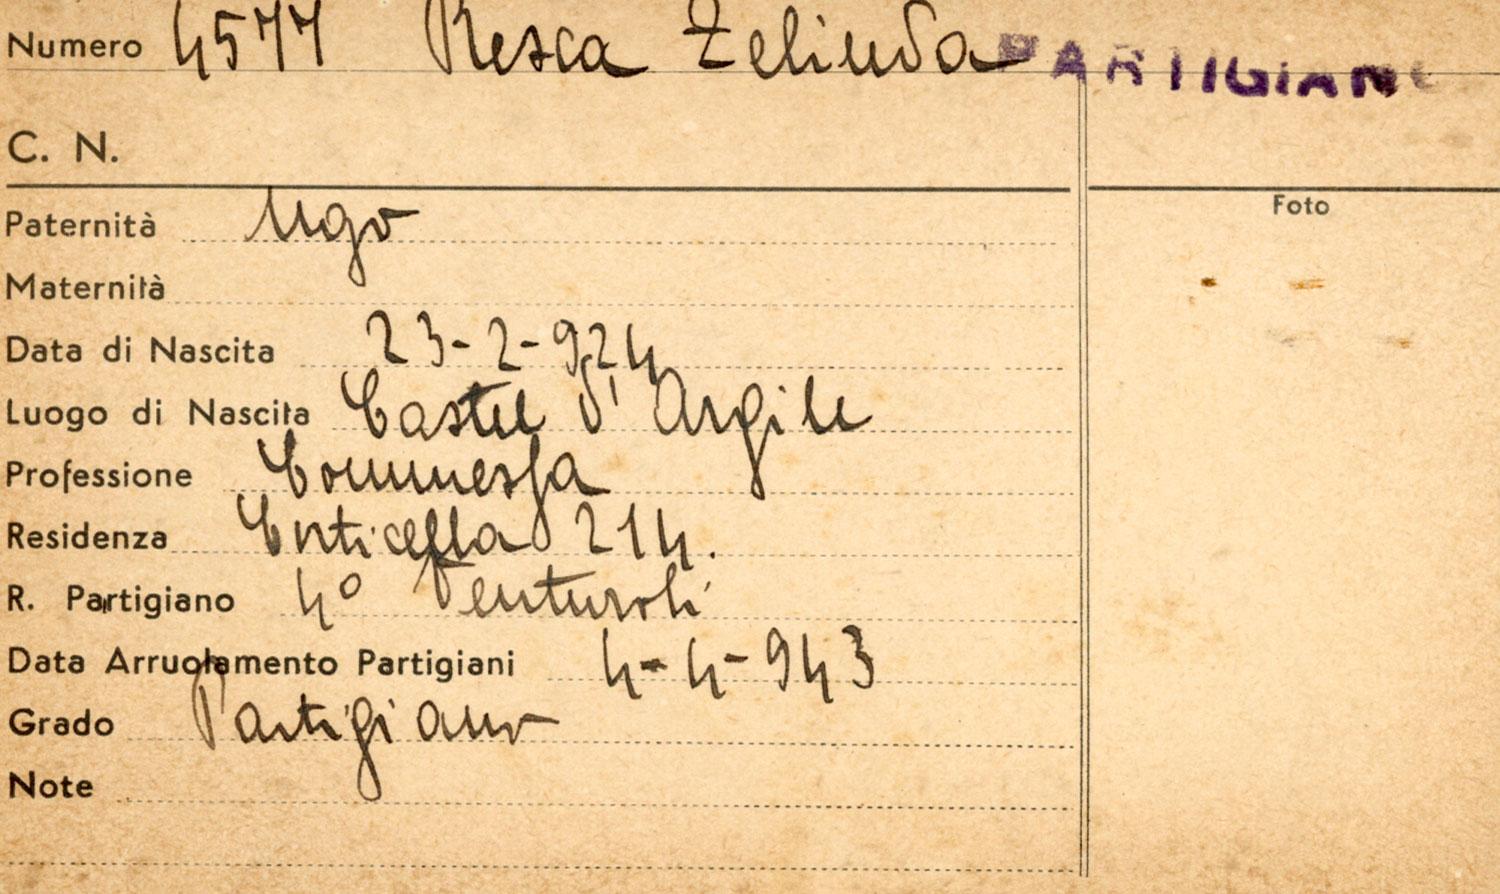 Numero 4577 Resca Zelinda PARTIGIANO
C. N.
Foto
Paternità Ugo
Maternità
Data di Nascita 23-2-924
Luogo di Nascita Castel d'Argile
Professione Commessa
Residenza Corticella 214.
R. Partigiano 4° Venturoli
Data Arruolamento Partigiani 4-4-943
Grado Partigiano
Note